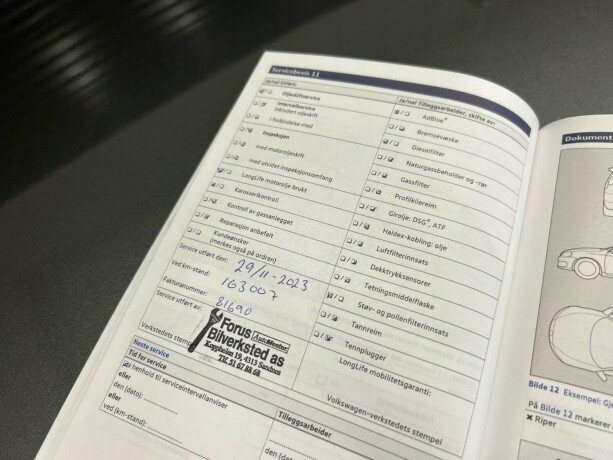 Servicebevis 11
Ja/nei Utført:
Oljeskiftservice
Intervallservice
inkludert oljeskift
I forbindelse med
Inspeksjon
med motoroljeskift
med utvidet inspeksjonsomfang
LongLife motorolje brukt
Karosserikontroll
Kontroll av gassanlegget
Reparasjon anbefalt
Kundeønsker
(merkes også på ordren)
Service utført den: 29/11-2023
Ved km-stand: 163007
Fakturanummer: 81690
Service utført av:
Forus AutoMester
Bilverksted as
Koppholen 19, 4313 Sandnes
Tlf. 51 67 88 68
Verkstedets stempel
Ja/nei Tilleggsarbeider, skifte av:
AdBlue®
Bremsevæske
Dieselfilter
Naturgassbeholder og -rør
Gassfilter
Profilkilereim
Girolje: DSG®, ATF
Haldex-kobling: olje
Luftfilterinnsats
Dekktrykksensorer
Tetningsmiddelflaske
Støv- og pollenfilterinnsats
Tannreim
Tennplugger
LongLife mobilitetsgaranti:
Volkswagen-verkstedets stempel
Neste service
Tid for service
henhold til serviceintervallanviser
eller
den (dato):
eller
ved (km-stand):
Tilleggsarbeider
den (dato):
Dokument
Bilde 12 Eksempel:
På Bilde 12 markerer
✖ Riper